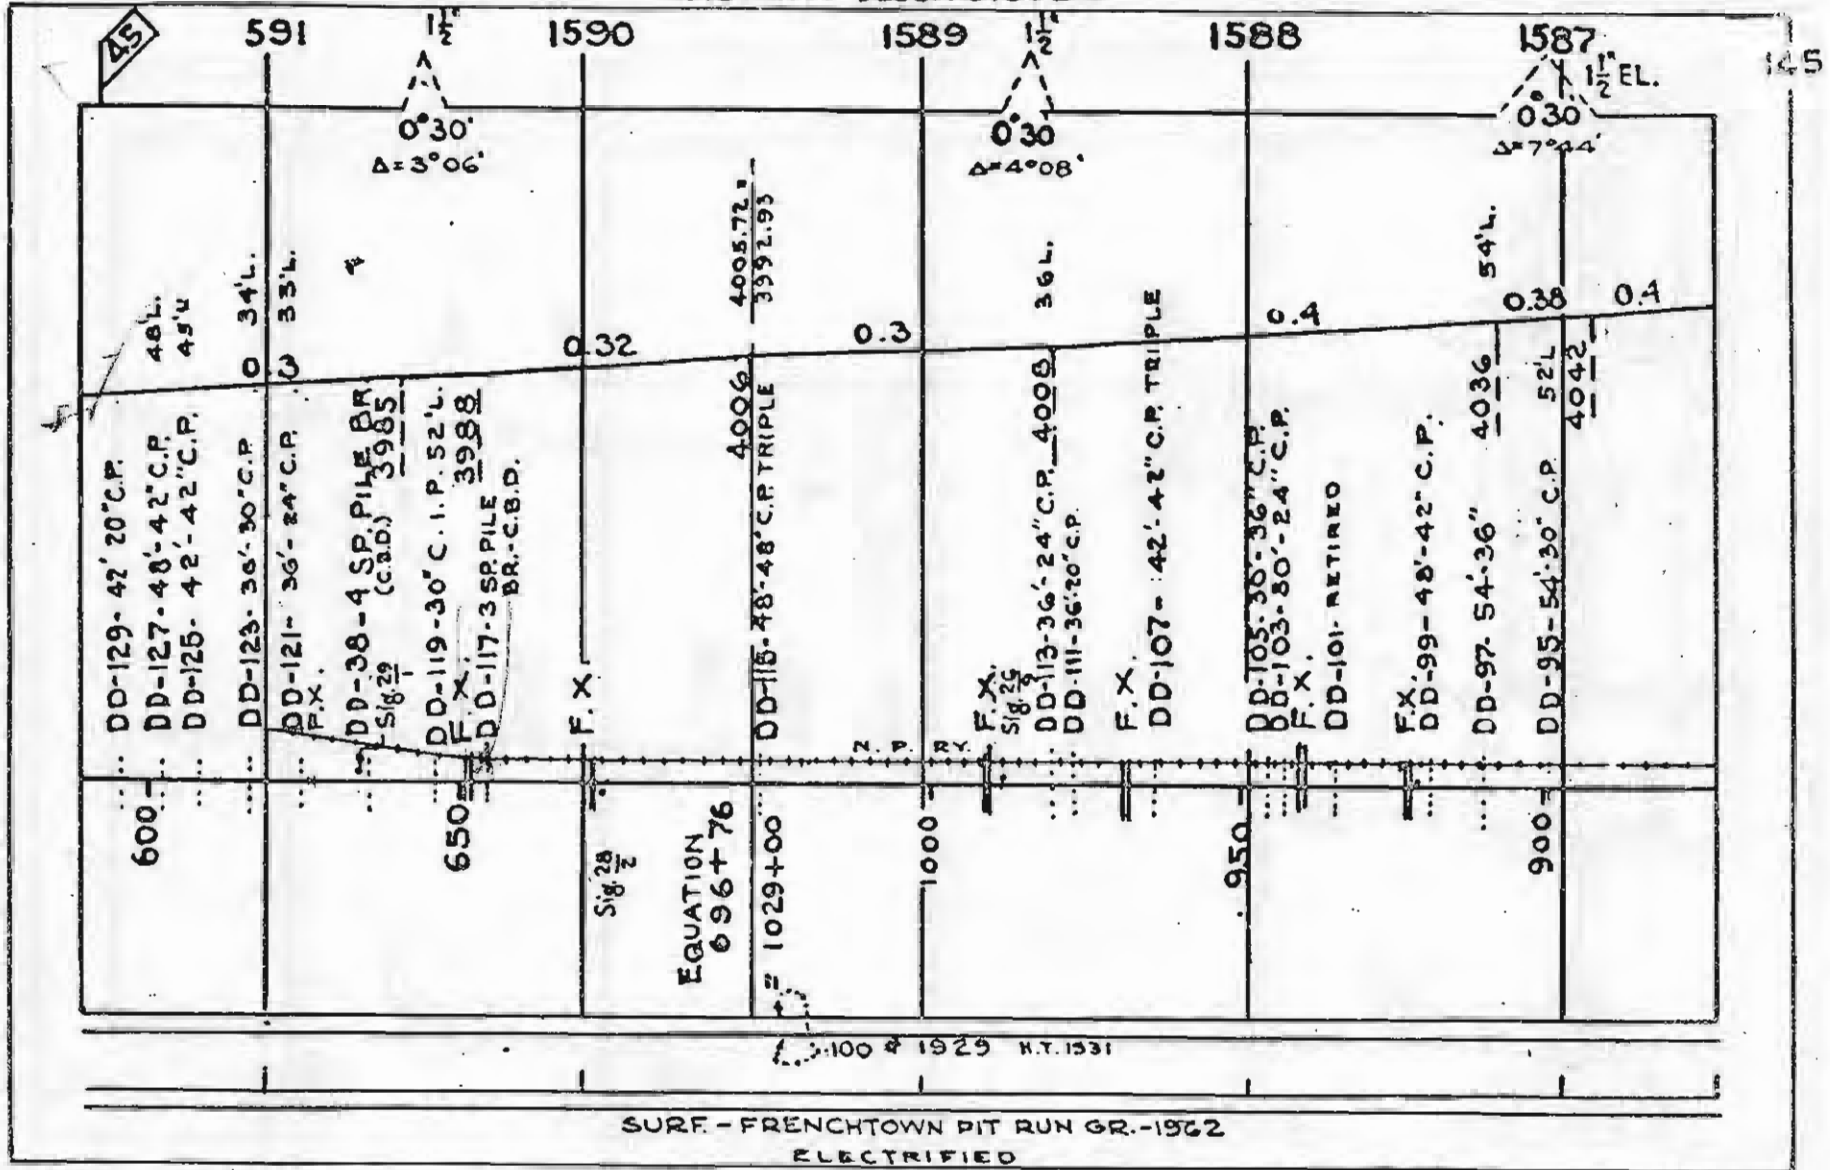 45
591
1½"
1590
1589
1½"
1588
1587
1½" EL.
145
0°30'
Δ=3°06'
0°30
Δ=4°08'
0°30
Δ=7°44'
48'L.
34'L.
33'L.
4005.72 =
3992.93
36 L.
54'L.
0.3
0.32
0.3
0.4
0.38
0.4
DD-129-42' 20" C.P.
DD-127-48'-42" C.P.
DD-125-42'-42" C.P.
DD-123-36'-30" C.P.
DD-121-36'-24" C.P.
F.X.
DD-38-4 SP. PILE BR.
(C.B.D.) 3985
Sig. 29/1
DD-119-30" C.I.P. 52'L.
F.X. 3988
DD-117-3 SP. PILE
BR.-C.B.D.
F.X.
4006
DD-115-48'-48" C.P. TRIPLE
F.X.
DD-113-36'-24" C.P. 4008
DD-111-36'-20" C.P.
F.X.
DD-107-42'-42" C.P. TRIPLE
DD-105-30'-36" C.P.
DD-103-80'-24" C.P.
F.X.
DD-101-RETIRED
F.X.
DD-99-48'-42" C.P.
DD-97-54'-36" 4036
DD-95-54'-30" C.P. 52'L
4042
N. P. RY.
600
650
Sig. 28/2
EQUATION
696+76
= 1029+00
1000
950
900
100 # 1929 H.T. 1931
SURF.-FRENCHTOWN PIT RUN GR.-1962
ELECTRIFIED